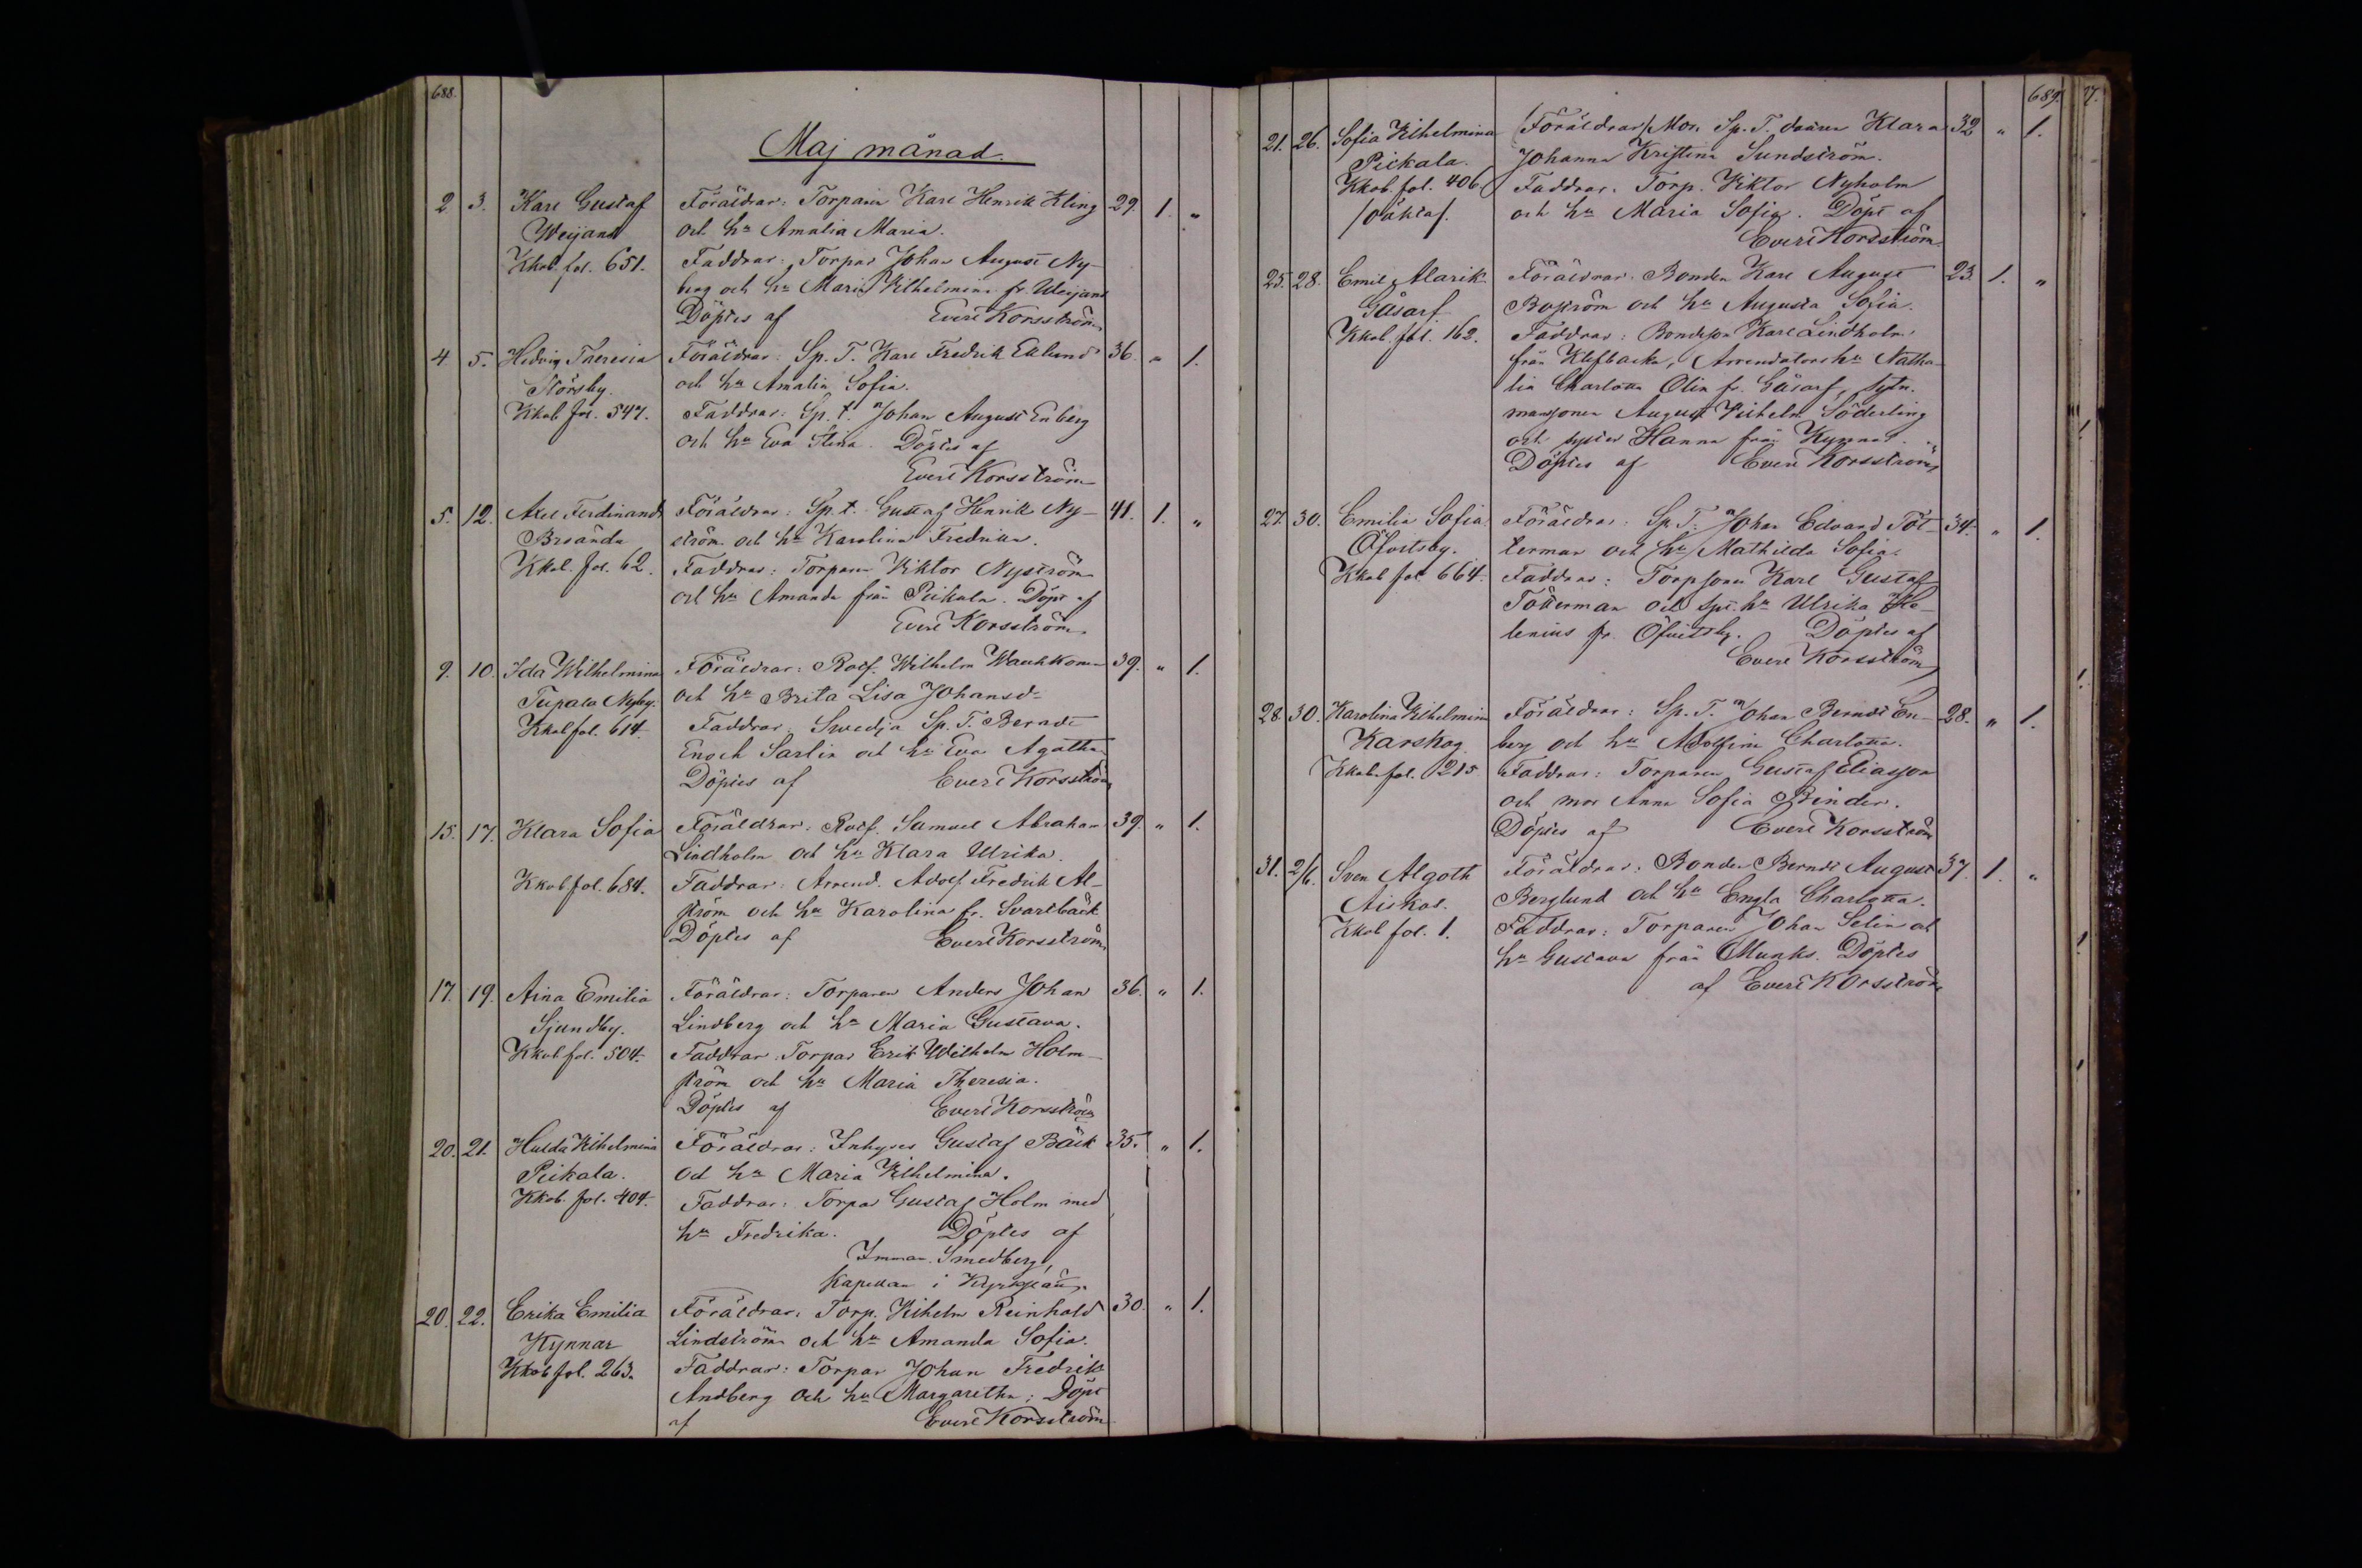 688.
Maj månad.
2. 3. Karl Gustaf Föräldrar: Torparen Karl Henrik Kling 29. 1. "
Weijans och hu Amalia Maria.
Kkob. fol. 651. Faddrar: Torpar Johan August Ny-
berg och hu Maria Vilhelmina fr. Weijans
Döptes af Evert Korsström
4. 5. Hedvig Theresia Föräldrar: Sp. T. Karl Fredrik Eklund 36. " 1.
Störsby. och hu Amalia Sofia.
Kkob fol. 547. Faddrar: Sp. t. Johan August Enberg
och hu Eva Stina. Döptes af
Evert Korsström
5. 12. Axel Ferdinand Föräldrar: Sp. t. Gustaf Henrik Ny- 41. 1. "
Brsånda ström och hu Karolina Fredrika.
Kkob. fol. 62. Faddrar: Torparen Viktor Nyström
och hu Amanda från Pickala. Döpt af
Evert Korsström
9. 10. Ida Wilhelmina Föräldrar: Rotf. Wilhelm Wauhkonen 39. " 1.
Tupala Nyby. och hu Brita Lisa Johansd-
Kkob fol. 614. Faddrar: Swedja Sp. T. Berndt
Enoch Sarlin och hu Eva Agatha
Döptes af Evert Korsström
15. 17. Klara Sofia Föräldrar: Rotf. Samuel Abraham 39. " 1.
Lindholm och hu Klara Ulrika.
Kkob fol. 684. Faddrar: Arrend. Adolf Fredrik Al-
ström och hu Karolina fr. Svartbäck
Döptes af Evert Korsström
17. 19. Aina Emilia Föräldrar: Torparen Anders Johan 36. " 1.
Sjundby. Lindberg och hu Maria Gustava.
Kkob fol. 504. Faddrar: Torpar Erik Wilhelm Holm-
ström och hu Maria Theresia.
Döptes af Evert Korsström
20. 21. Hulda Vilhelmina Föräldrar: Inhyses Gustaf Bäck 35. " 1.
Pickala. och hu Maria Vilhelmina.
Kkob. fol. 404. Faddrar: Torpar Gustaf Holm med
hu Fredrika. Döptes af
Imman. Smedberg,
Kapellan i Kyrkslätt.
20. 22. Erika Emilia Föräldrar: Torp. Vilhelm Reinhold 30. " 1.
Kynnar Lindström och hu Amanda Sofia.
Kkob fol. 263. Faddrar: Torpar Johan Fredrik
Andberg och hu Margaretha; Döpt
af Evert Korsström
689.
21. 26. Sofia Vilhelmina (Föräldrar) Mor. Sp. T. daären Klara 32 " 1.
Pickala. Johanna Kristina Sundström.
Kkob. fol. 406. Faddrar: Torp. Viktor Nyholm
/oäkta/. och hu Maria Sofia. Döpt af
Evert Korsström
25. 28. Emil Alarik Föräldrar: Bonden Karl August 23. 1. "
Gåsarf Boström och hu Augusta Sofia.
Kkob. fol. 162. Faddrar: Bondeson Karl Lindholm
från Klefbacka, Arrendators hu Natha-
lia Charlotta Olin fr. Gåsarf,
August Vilhelm Söderling
och syster Hanna från Kynnar.
Döptes af Evert Korsström
27. 30. Emilia Sofia Föräldrar: Sp. T. Johan Edvard Töt- 34. " 1.
Öfvitsby. terman och hu Mathilda Sofia.
Kkob fol 664. Faddrar: Torpsonen Karl Gustaf
Tötterman och Spt. hu Ulrika He-
lenius fr. Öfvitsby. Döptes af
Evert Korsström
28. 30. Karolina Vilhelmina Föräldrar: Sp. T. Johan Berndt En- 28. " 1.
Karskog. berg och hu Adolfina Charlotta.
Kkob fol. 215 Faddrar: Torparen Gustaf Eliasson
och mor Anna Sofia Binder.
Döptes af Evert Korsström
31. 2/6. Sven Algoth Föräldrar: Bonden Berndt August 37. 1. "
Aiskos. Berglund och hu Engla Charlotta.
Kkob fol. 1. Faddrar: Torparen Johan Selin och
hu Gustava från Munks. Döptes
af Evert Korsström